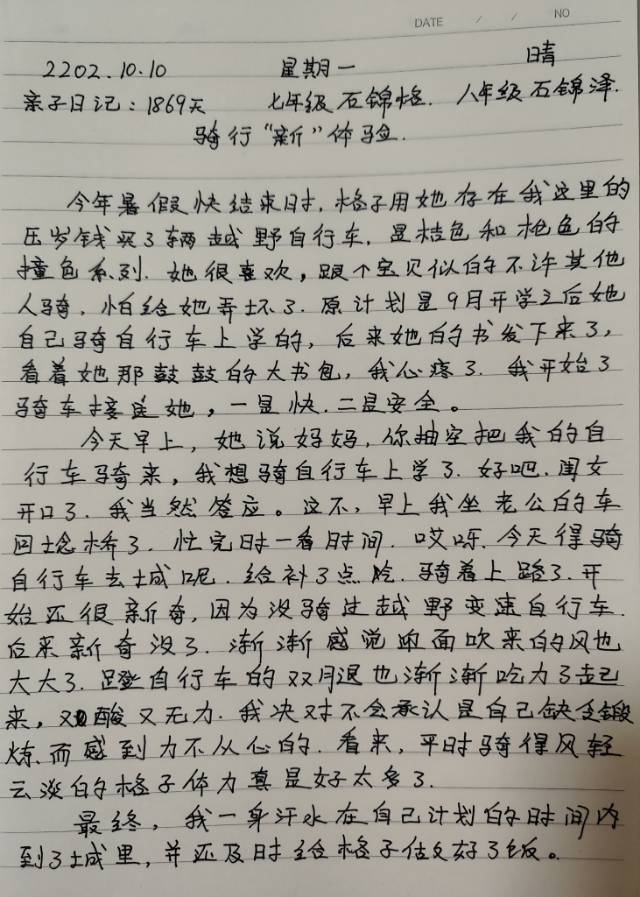 DATE / / NO
2202.10.10 星期一 晴
亲子日记：1869天 七年级 石锦格. 八年级 石锦泽.
骑行“新”体验.
今年暑假快结束时，格子用她存在我这里的
压岁钱买了辆越野自行车，是桔色和橙色的
撞色系列. 她很喜欢，跟个宝贝似的不许其他
人骑，怕给她弄坏了. 原计划是9月开学之后她
自己骑自行车上学的，后来她的书发下来了，
看着她那鼓鼓的大书包，我心疼了. 我开始了
骑车接送她，一是快.二是安全。
今天早上，她说妈妈，你抽空把我的自
行车骑来，我想骑自行车上学了. 好吧.闺女
开口了. 我当然答应。这不，早上我坐老公的车
回埝桥了. 忙完时一看时间. 哎呀. 今天得骑
自行车去城呢. 给补了点胎. 骑着上路了. 开
始还很新奇，因为没骑过越野变速自行车.
后来新奇没了. 渐渐感觉迎面吹来的风也
大大了. 蹬自行车的双月退也渐渐吃力了起
来，又酸又无力. 我决对不会承认是自己缺乏锻
炼.而感到力不从心的. 看来，平时骑得风轻
云淡的格子体力真是好太多了.
最终，我一身汗水在自己计划的时间内
到了城里，并还及时给格子做好了饭。